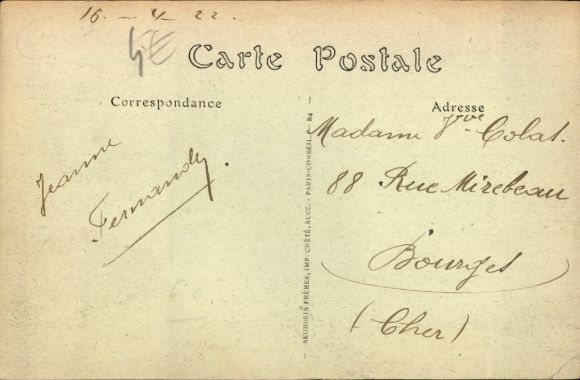 16 - 4 22.
4€
Carte Postale
Correspondance
Adresse
Jeanne
Fernande.
NEURDEIN FRÈRES, IMP. CRÉTÉ, SUCC. - PARIS-CORBEIL.
Madame Vve Colat.
88 Rue Mirebeau
Bourges
(Cher)